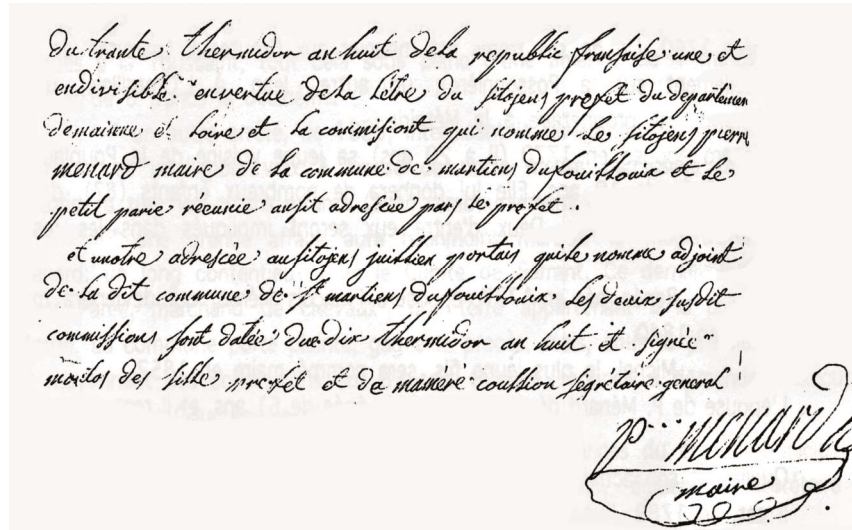 du trante thermidor an huit dela republic fransaise une et
endivisible. envertue dela lêtre du sitoyens prefet du departemen
demainne et Loire et la commisiont qui nomme Le sitoyens pierre
menard maire de la commune de martiens dufouilloux et le
petit parie réeunie ausit adresée pars le prefet.
et unotre adresée ausitoyens juillien portais quile nomme adjoint
de la dit commune de st martiens dufouilloux Les deuix susdit
commissions sont datée due dix thermidor an huit et signée
des prefet et de segrétaire general
P... menard
maire